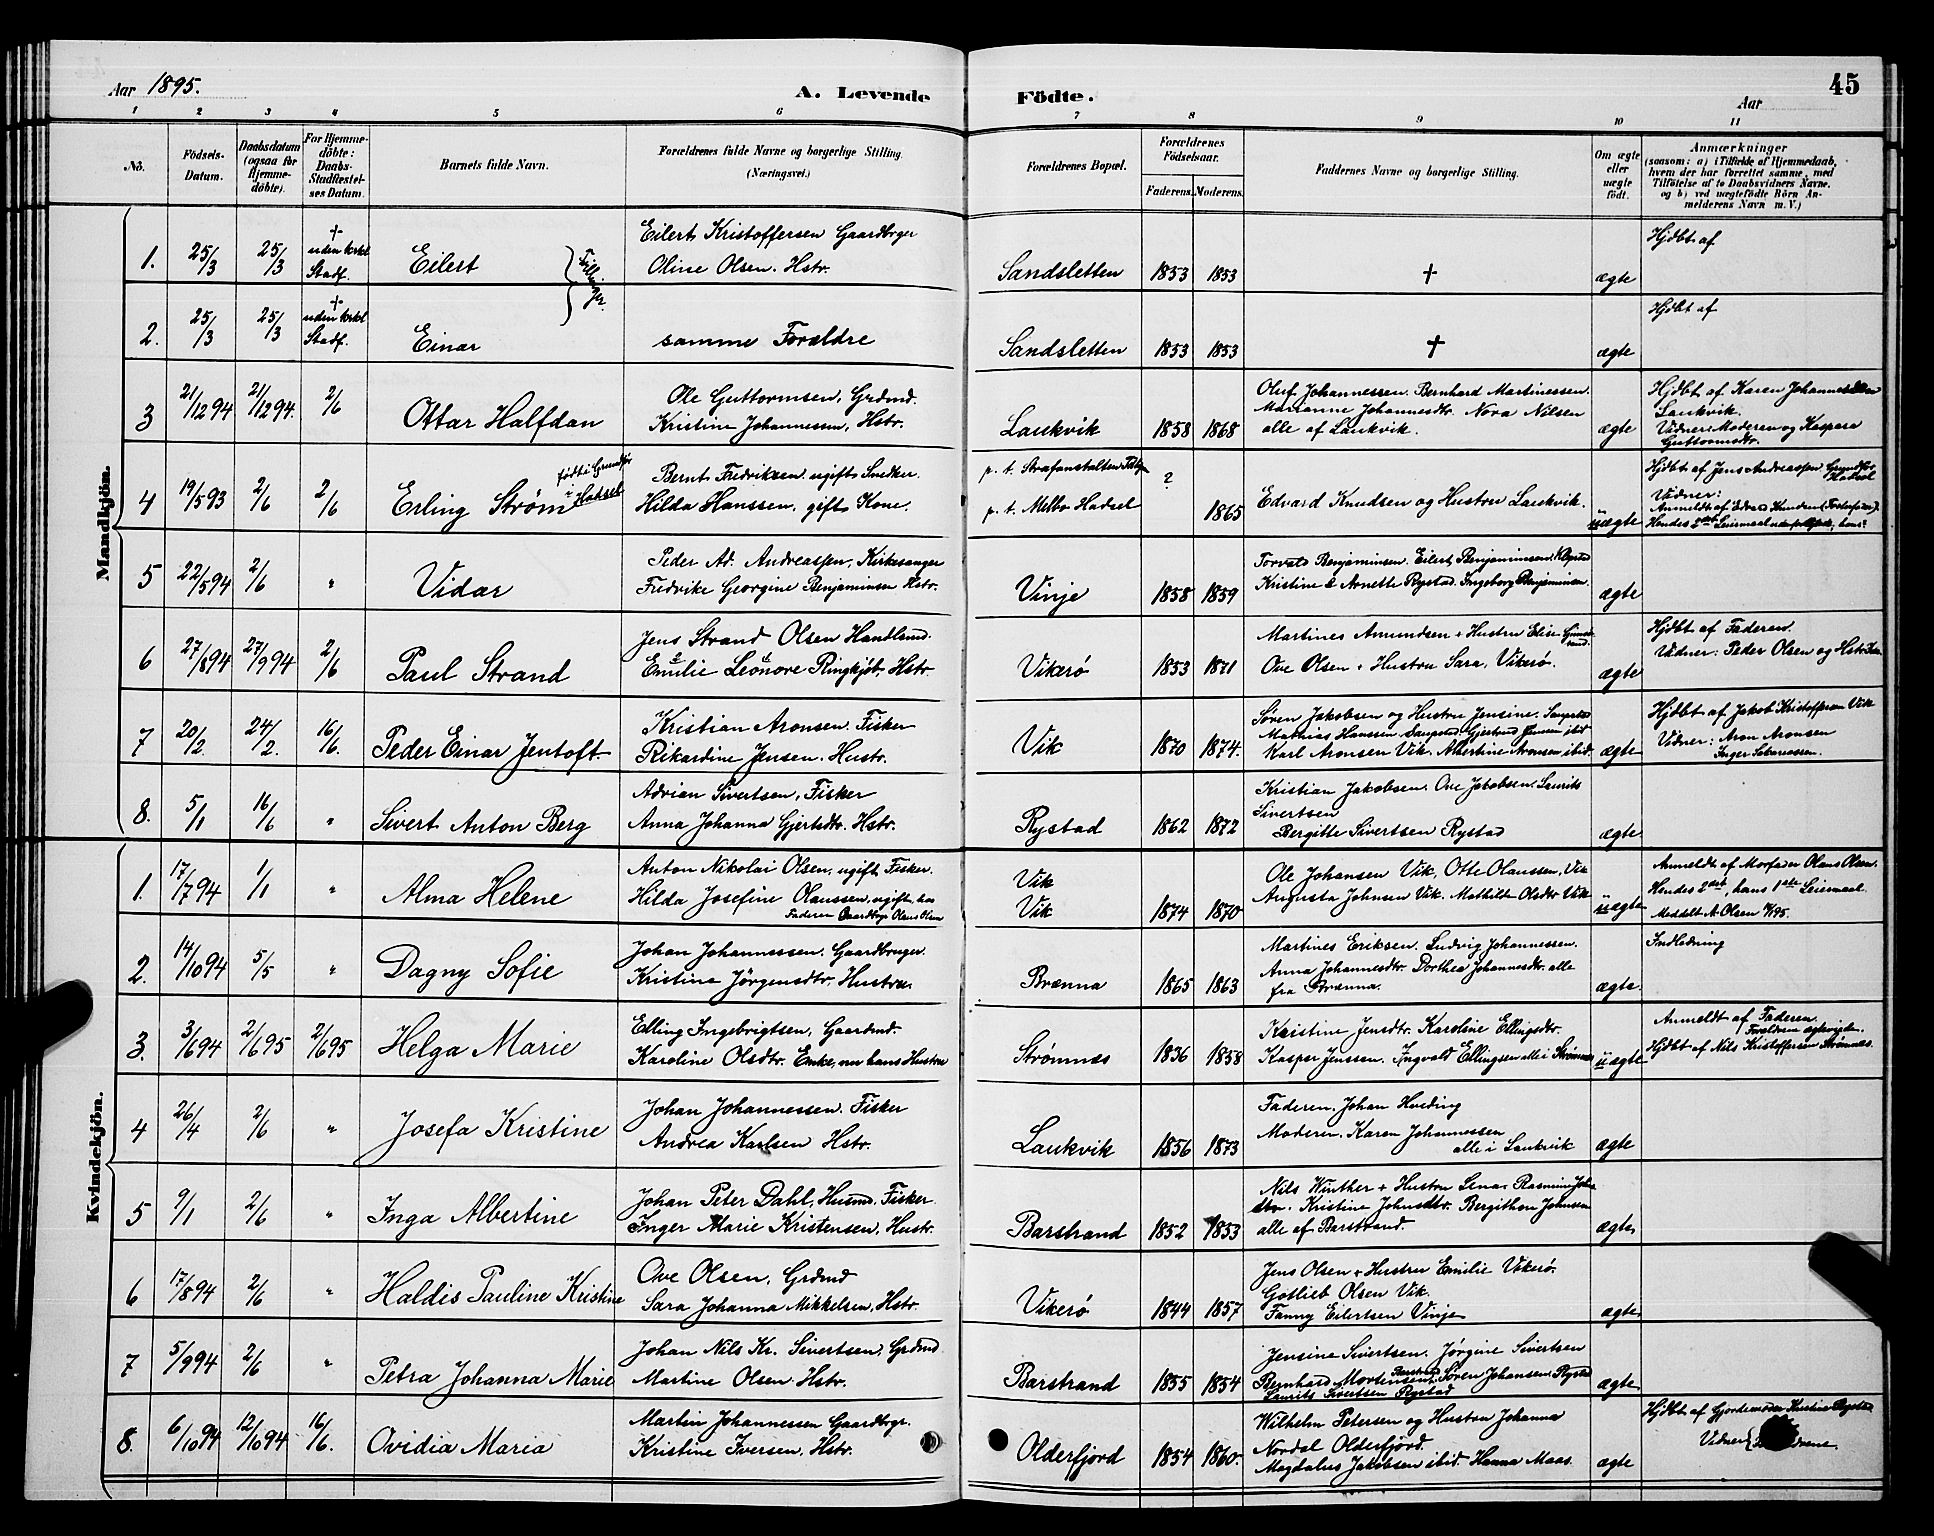 Aar 1895.
A. Levende Födte.
Aar
45
1 2 3 4 5 6 7 8 9 10 11
No.
Födsels-Datum.
Daabsdatum (ogsaa for Hjemme-döbte).
For Hjemme-döbte: Daabs-Stadfæstel-ses Datum.
Barnets fulde Navn.
Forældrenes fulde Navne og borgerlige Stilling. (Næringsvei.)
Forældrenes Bopæl.
Forældrenes Födselsaar.
Faderens. Moderens.
Faddernes Navne og borgerlige Stilling.
Om ægte eller uægte födt.
Anmærkninger
(saasom: a) i Tilfælde af Hjemmedaab, hvem der har forrettet samme, med Tilföielse af to Daabsvidners Navne, og b) ved uægtefödte Börn An-melderens Navn m. V.)
Mandkjön.
1. 25/3 25/3 † uden kirkl Stadf. Eilert } Tvillinger.
Eilert Kristoffersen Gaardbrger
Oline Olsen. Hstr.
Sandsletten 1853 1853 † ægte
Hjdbt af
2. 25/3 25/3 † uden kirkl Stadf. Einar
samme Forældre
Sandsletten 1853 1853 † ægte
Hjdbt af
3 21/12 94 21/12 94. 2/6 Ottar Halfdan
Ole Guttormsen, Grdmd.
Kristine Johannessen, Hstr.
Laukvik 1858 1868
Oluf Johannessen. Bernhard Martinessen.
Marianne Johannesdtr. Nora Nilsen
alle af Laukvik.
ægte
Hjdbt af Karen
Laukvik.
Vidner: Moderen og Kaspara
Guttormsdtr.
4 19/5 93 2/6 2/6 Erling Strøm
født i
Hadsel
Bernt Fredriksen ugift Snedker.
Hilda Hanssen, gift Kone.
p. t. Strafanstalten
p. t. Melbo Hadsel
? 1865
Edvard Knudsen og Hustru Laukvik.
uægte
Hjdbt af Jens Andreassen
Hadsel
Vidner:
Anmeldt af Edvard Knudsen (Fosterfar).
5 22/5 94 2/6 " Vidar
Peder Ad. Andreassen, Kirkesanger
Fredrike Georgine Benjaminsen Hstr.
Vinje 1858 1859
Torvald Benjaminsen. Eilert Benjaminsen. Rystad
Kristine & Arnette Rystad. Ingeborg Benjaminsen.
ægte
6 27/8 94 27/9 94 2/6 Paul Strand
Jens Strand Olsen Handlsmd.
Emilie Leonore Ringkjøb, Hstr.
Vikerø 1853 1871
Martines Amundsen + Hustru Elise
Ove Olsen + Hustru Sara, Vikerø.
ægte
Hjdbt af Faderen
Vidner: Peder Olsen og Hstr
7 20/2. 24/2. 16/6. Peder Einar Jentoft.
Kristian Aronsen. Fisker
Rikardine Jensen. Hustr.
Vik 1870 1874.
Søren Jakobsen og Hustru Jensine.
Mathias Hanssen. Gjertrud Jensen ibid
Karl Aronsen Vik. Albertine Aronsen ibid.
ægte
Hjdbt af Jakob Kristoffersen Vik
Vidner: Aron Aronsen
Inger
8. 5/1 16/6 " Sivert Anton Berg
Adrian Sivertsen, Fisker
Anna Johanna Gjertsdtr. Hstr.
Rystad 1862 1872
Kristian Jakobsen. Ove Jakobsen. Laurits
Sivertsen
Bergitte Sivertsen Rystad
ægte
Kvindekjön.
1. 17/7 94 1/1 " Alma Helene
Anton Nikolai Olsen, ugift Fisker.
Hilda Josefine Olaussen, ugift, hos
Faderen Gaardbrgr Olaus Olsen
Vik
Vik 1874 1870
Ole Johansen Vik. Otte Olaussen, Vik
Augusta Johnsen Vik. Mathilde Olsdtr Vik
uægte
Anmeldt af Morfader Olaus Olsen.
Hendes 2det, hans 1ste Leiermaal.
Meddelt A. Olsen
2. 14/10 94 5/5 " Dagny Sofie
Johan Johannessen. Gaardbruger.
Kristine Jörgensdtr. Hustru.
Brenna 1865 1863
Martines Eriksen. Ludvig Johannessen.
Anna Johannesdtr. Dorthea Johannesdtr. alle
fra Brenna.
ægte.
Indledning
3. 3/6 94 2/6 95 2/6 95 Helga Marie
Elling Ingebrigtsen, Gaardmd.
Karoline Olsdtr. Enke, nu hans Hustru
Strømnæs 1836 1858
Kristine Jensdtr. Karoline Ellingsdtr.
Kasper Jenssen. Ingvald Ellingsen alle i Strømnæs
uægte
Anmeldt af Faderen.
Forældrene ægteviede.
Hjdbt af Nils Kristoffersen Strømnæs.
4 26/4 2/6 " Josefa Kristine
Johan Johannessen. Fisker
Andrea Karlsen Hstr.
Laukvik 1856 1873
Faderen. Johan Hveding
Moderen. Karen Johannessen
alle i Laukvik
ægte
5 9/1 2/6 " Inga Albertine
Johan Peter Dahl, Husmd. Fisker.
Inger Marie Kristensen, Hustr.
Barstrand 1852 1853
Nils Winther + Hustru Lena. Rasmine
Kristine Johnsdtr. Bergithon Johnsen
alle af Barstrand.
ægte
6 17/8 94 2/6 " Haldis Pauline Kristine
Ove Olsen, Grdmd
Sara Johanna Mikkelsen, Hstr.
Vikerø 1844 1857
Jens Olsen + Hustru Emilie Vikerø.
Gotlieb Olsen Vik.
Fanny Eilertsen Vinje
ægte
7 5/9 94 2/6 " Petra Johanna Marie
Johan Nils Kr. Sivertsen, Grdmd
Martine Olsen Hstr.
Barstrand 1855 1854
Jensine Sivertsen. Jørgine Sivertsen
Barstrand
Bernhard Mortensen, Søren Johansen, Rystad
Laurits Sivertsen Rystad
ægte
8. 6/10 94 12/10 94 16/6. Ovidia Maria
Martin Johannessen Gaardbrgr.
Kristine Iversen, Hstr.
Olderfjord 1854 1860.
Wilhelm Petersen og Hustru Johanna
Nordal Olderfjord.
Magdalus Jakobsen ibid. Hanna Maas.
ægte
Hjdbt af Gjordemoder Kristine Rystad
Vidner